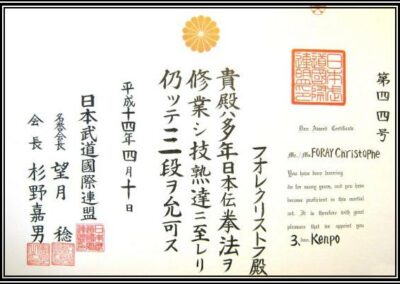 第四四号
Dan Award Certificate
Mr./Ms. FORAY Christophe
You have been learning
do for many years, and you have
become proficient in this martial
art. It is therefore with great
pleasure that we appoint you
3. Dan Kenpo
フオレクリストフ殿
貴殿ハ多年日本伝拳法ヲ
修業シ技熟達ニ至レリ
仍ッテ三段ヲ允可ス
平成十四年四月十日
日本武道國際連盟
名誉会長 望月 稔
会長 杉野嘉男